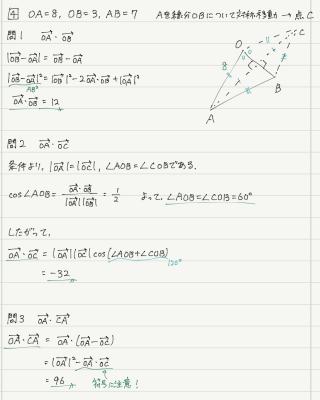 4 OA=8, OB=3, AB=7 Aを線分OBについて対称移動 → 点C
問1 OA・OB
|OB-OA| = OB-OA
|OB-OA|² = |OB|²-2OA・OB+|OA|²
AB²
OA・OB = 12
問2 OA・OC
条件より, |OA|=|OC|, ∠AOB=∠COBである.
cos∠AOB = OA・OB / |OA||OB| = 1/2 よって, ∠AOB=∠COB=60°
したがって,
OA・OC = |OA||OC|cos(∠AOB+∠COB)
120°
= -32
問3 OA・CA
OA・CA = OA・(OA-OC)
= |OA|²-OA・OC
= 96 符号に注意!
O
C
8
A
B